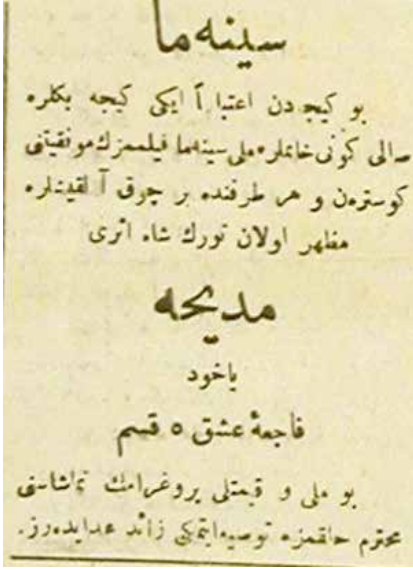 سينه‌ما
بو كيجه دن اعتباراً ايكى كيجه بكلره
صالى كونى خانملره ملى سينه‌ما فيلممزك موفقيتنى
كوسترەن و هر طرفنده بر چوق آلقيشلره
مظهر اولان تورك شاه اثرى
مديحه
ياخود
فاجعهٔ عشق ٥ قسم
بو ملى و قيمتلى پروغرامك تماشاسنى
محترم خلقمزه توصيه ايتمكى زائد عد ايده‌رز.